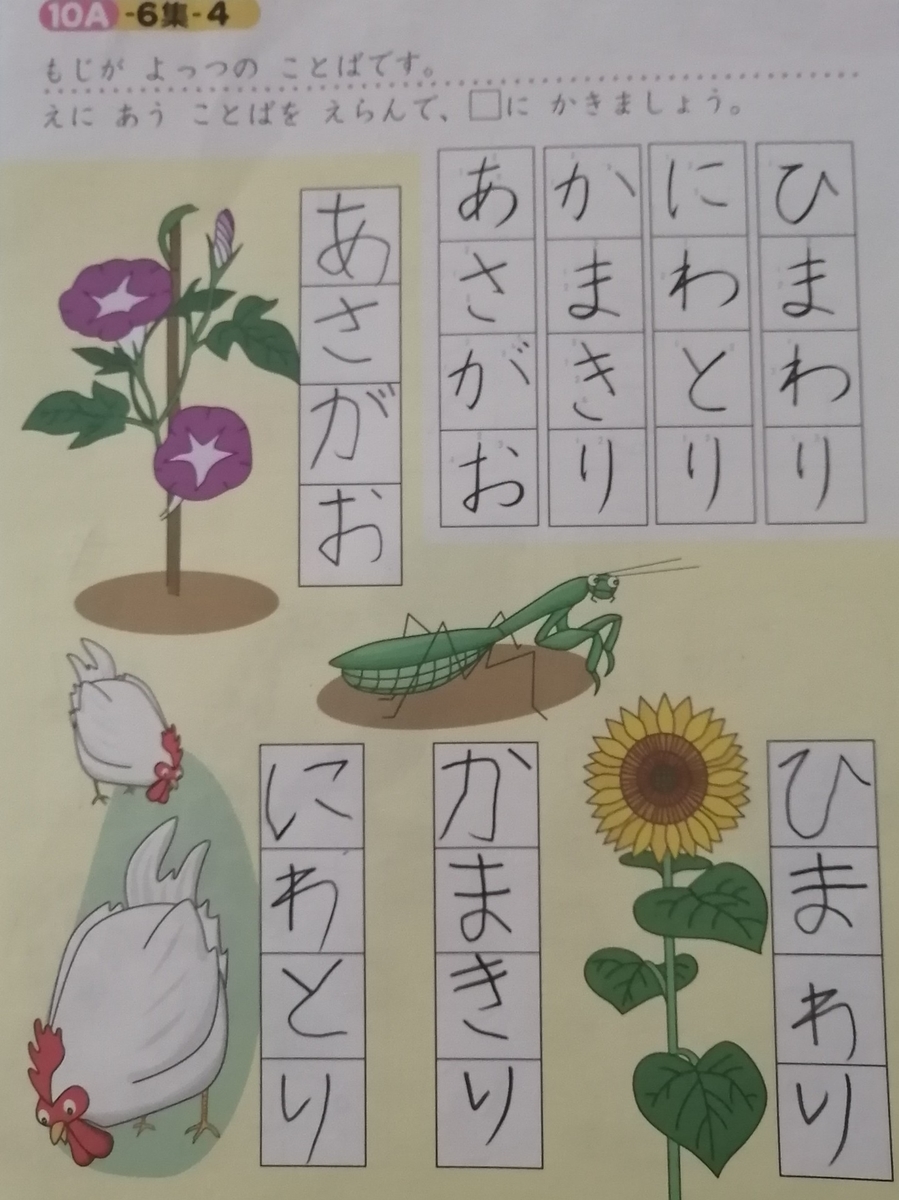 10A-6集-4
もじが よっつの ことばです。
えに あう ことばを えらんで、□に かきましょう。
ひまわり
にわとり
かまきり
あさがお
あさがお
ひまわり
かまきり
にわとり